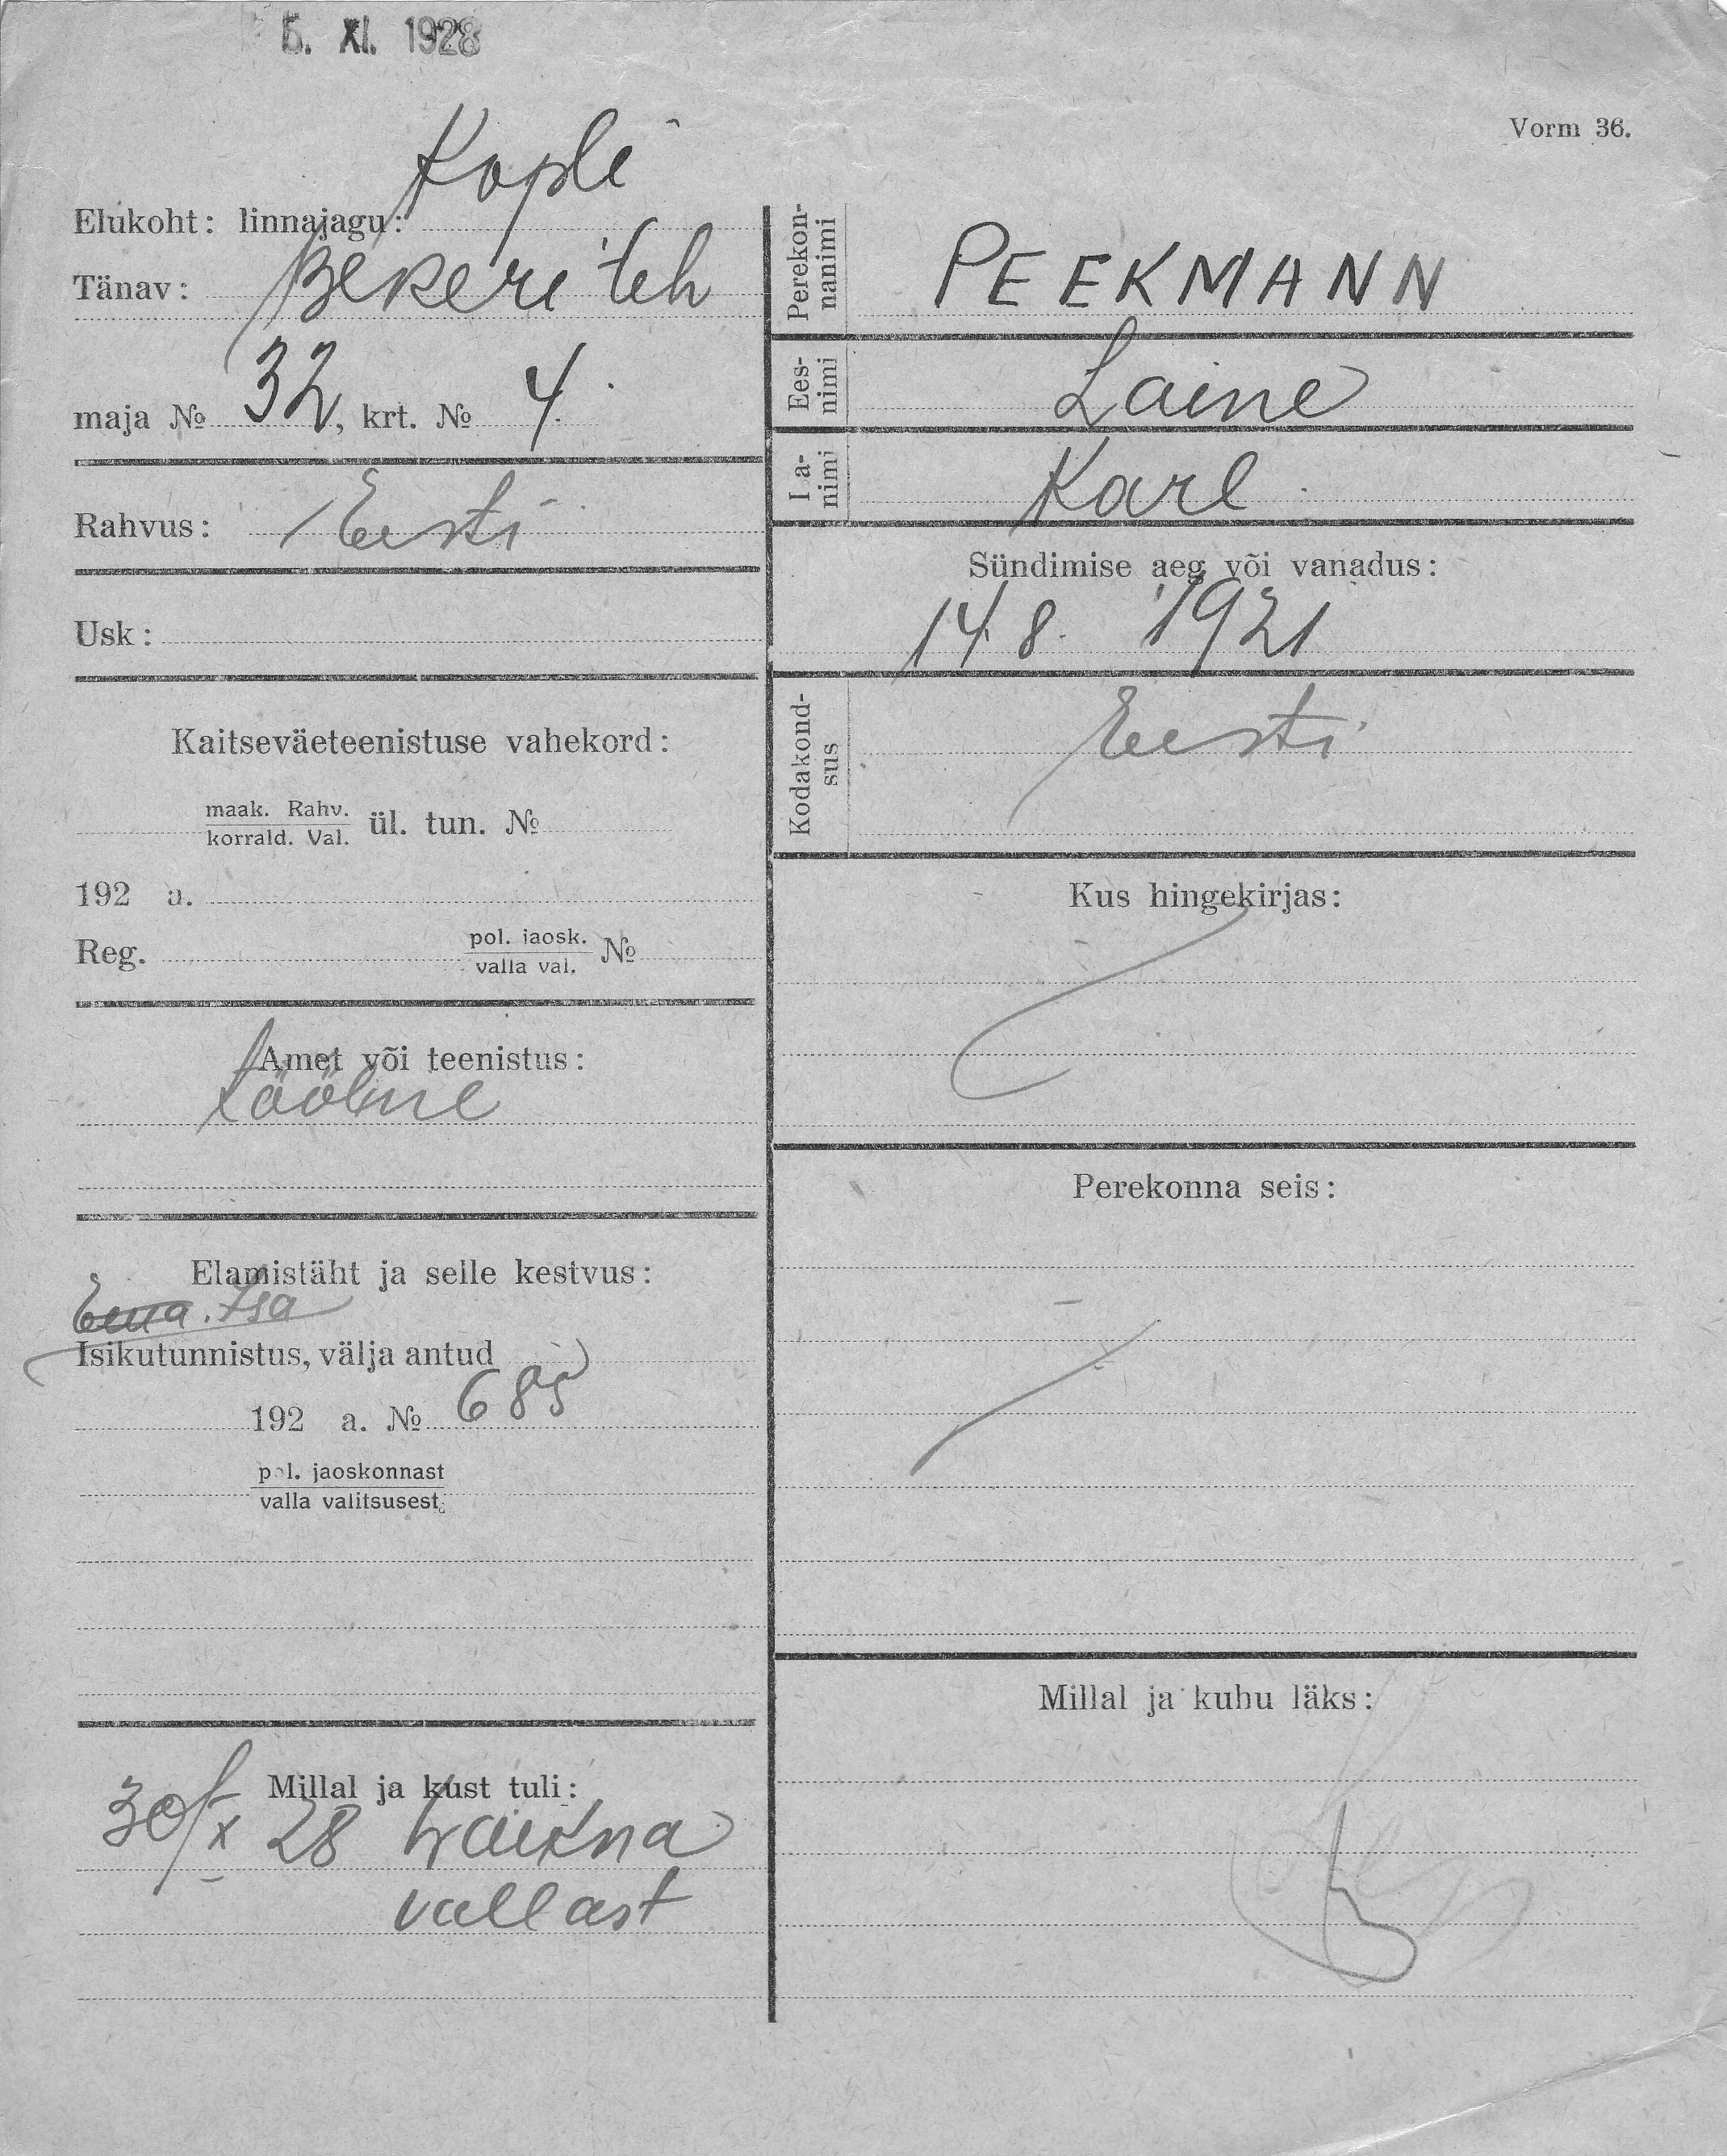 5. XI. 1928
Vorm 36.
Kopli
Elukoht: linnajagu:
Tänav: Bekeri teh
maja № 32, krt. № 4.
Rahvus: Eesti
Usk:
Kaitseväeteenistuse vahekord:
maak. Rahv.
korrald. Val. ül. tun. №
192 a.
Reg. pol. jaosk.
valla val. №
Amet või teenistus:
tööline
Elamistäht ja selle kestvus:
Ema. Isa
Isikutunnistus, välja antud
192 a. № 685
pol. jaoskonnast
valla valitsusest
Millal ja kust tuli:
30/X 28
vallast
Perekon-
nanimi PEEKMANN
Ees-
nimi Laine
Isa-
nimi Karl
Sündimise aeg või vanadus:
14. 8. 1921
Kodakond-
sus Eesti
Kus hingekirjas:
Perekonna seis:
Millal ja kuhu läks: